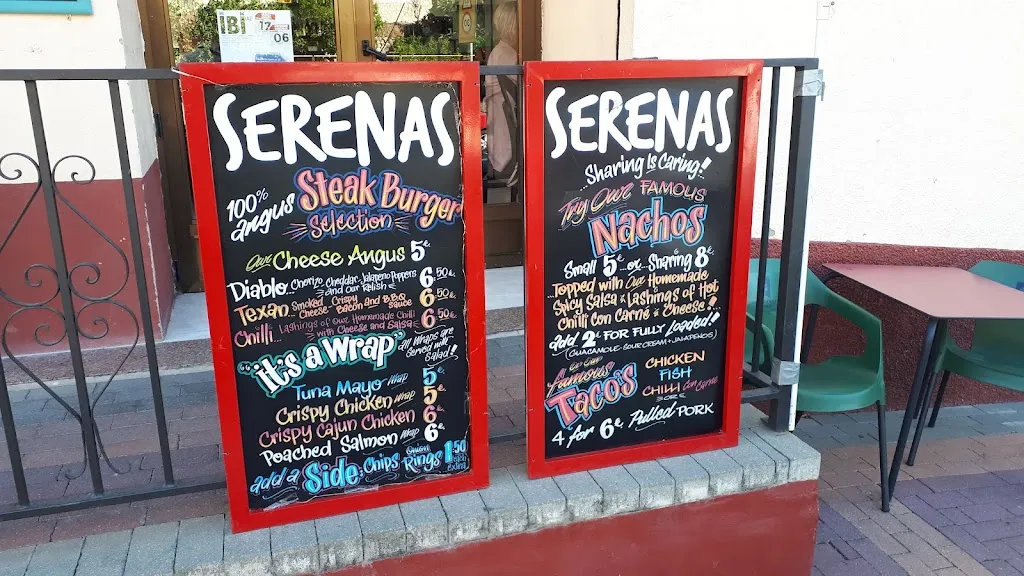 IBI
17
06
SERENAS
100% angus Steak Burger
Selection
Our Cheese Angus 5€
Diablo... Chorizo, Cheddar, Jalapeno Peppers and our Relish 6.50€
Texan... Smoked Cheese - Crispy Bacon and B.B.Q Sauce 6.50€
Chilli... Lashings of our Homemade Chilli with Cheese and Salsa 6.50€
"it's a Wrap" all Wraps are Served with Salad!
Tuna Mayo Wrap 5€
Crispy Chicken Wrap 5€
Crispy Cajun Chicken 6€
Poached Salmon Wrap 6€
add a Side Chips Onion Rings 1.50 each extra!
SERENAS
...Sharing Is Caring!
Try Our FAMOUS
Nachos
Small 5€...or...Sharing 8€
...Topped with our Homemade
Spicy Salsa & Lashings of Hot
Chilli Con Carne & Cheese!
add 2€ FOR FULLY Loaded!!
(GUACAMOLE - SOUR CREAM + JALAPENOS)
or our
famous
TACO'S
CHICKEN
FISH
CHILLI Con Carne
OR
4 for 6€ Pulled PORK